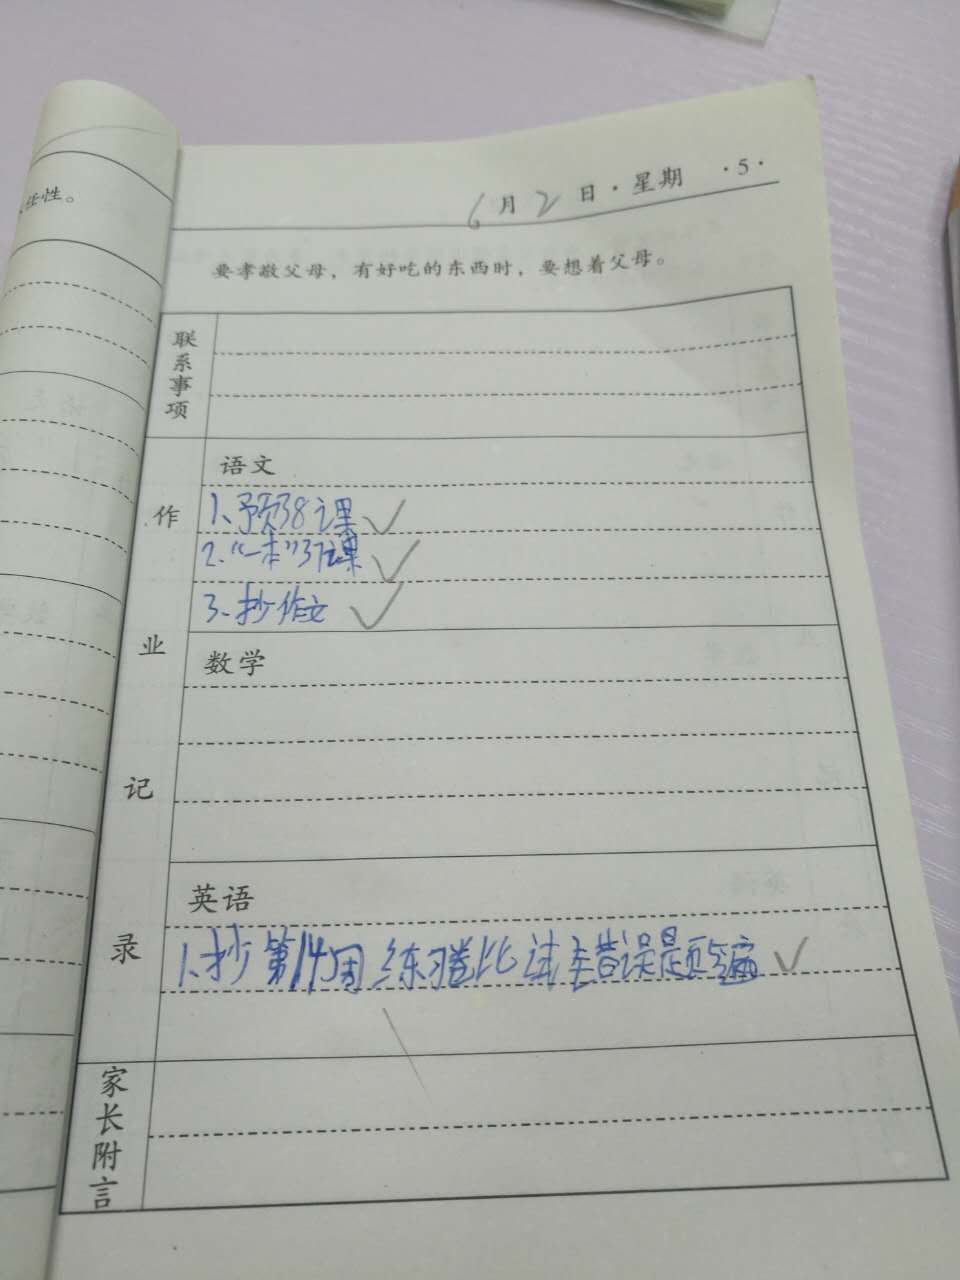 任性。
6月2日·星期 ·5·
要孝敬父母，有好吃的东西时，要想着父母。
联系事项
作业记录
语文
1、预38课
2、“一本”37课
3、抄作文
数学
英语
1、抄第14周练习卷比试卷错误是更5遍
家长附言